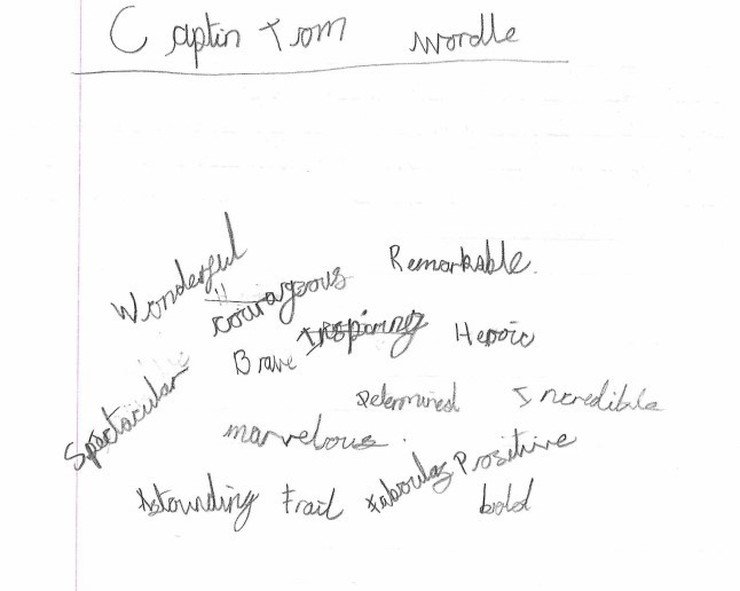 Captin Tom wordle
Wonderful
courageous
Remarkable.
Inspiring
Heroic
Brave
Spectacular
Determined
Incredible
marvelous.
Positive
Astounding
frail
faboulas
bold